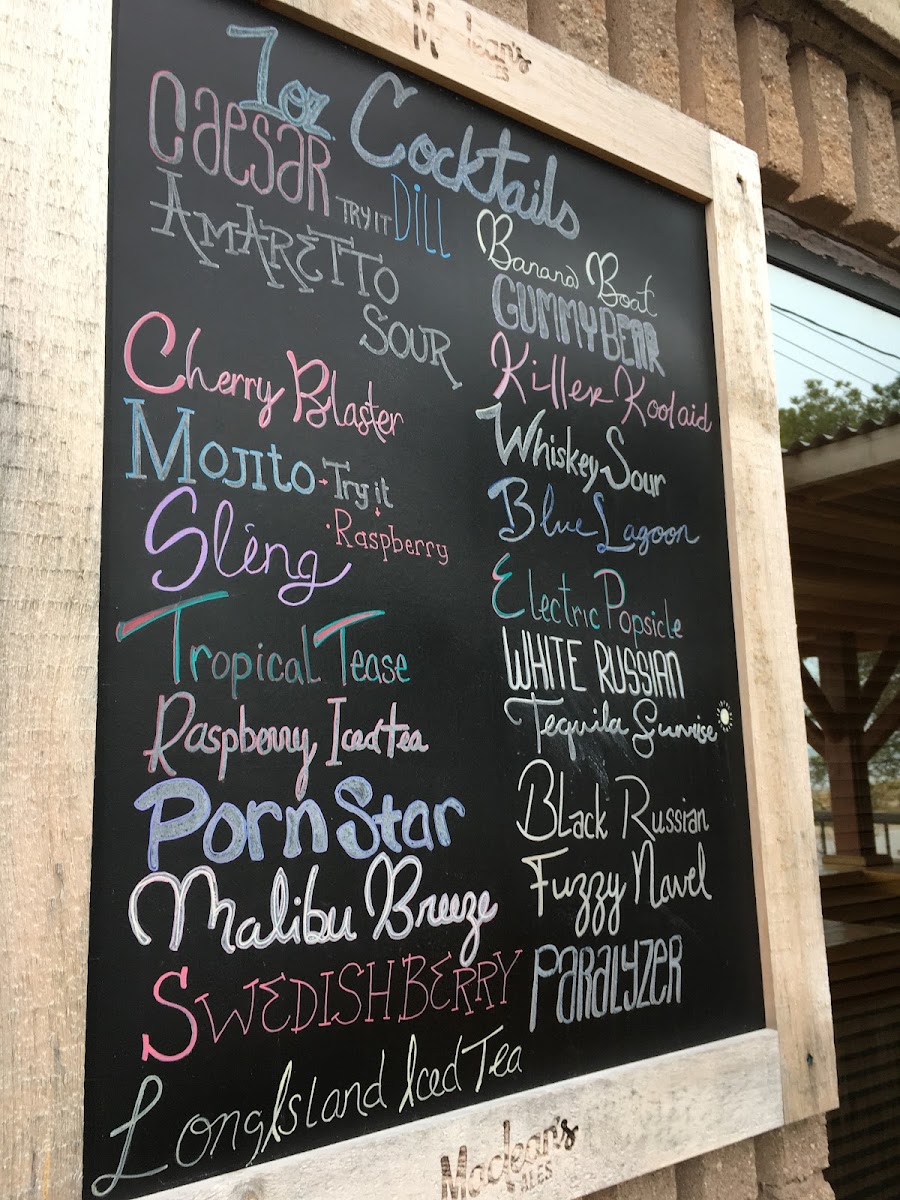 MacLean's
ALES
1oz. Cocktails
Caesar TRY IT DILL
AMARETTO
SOUR
Cherry Blaster
Mojito → Try it
· Raspberry
Sling
Tropical Tease
Raspberry Iced Tea
Porn Star
Malibu Breeze
SWEDISH BERRY
Long Island Iced Tea
Banana Boat
GUMMY BEAR
Killer Koolaid
Whiskey Sour
Blue Lagoon
Electric Popsicle
WHITE RUSSIAN
Tequila Sunrise
Black Russian
Fuzzy Navel
PARALYZER
MacLean's
ALES